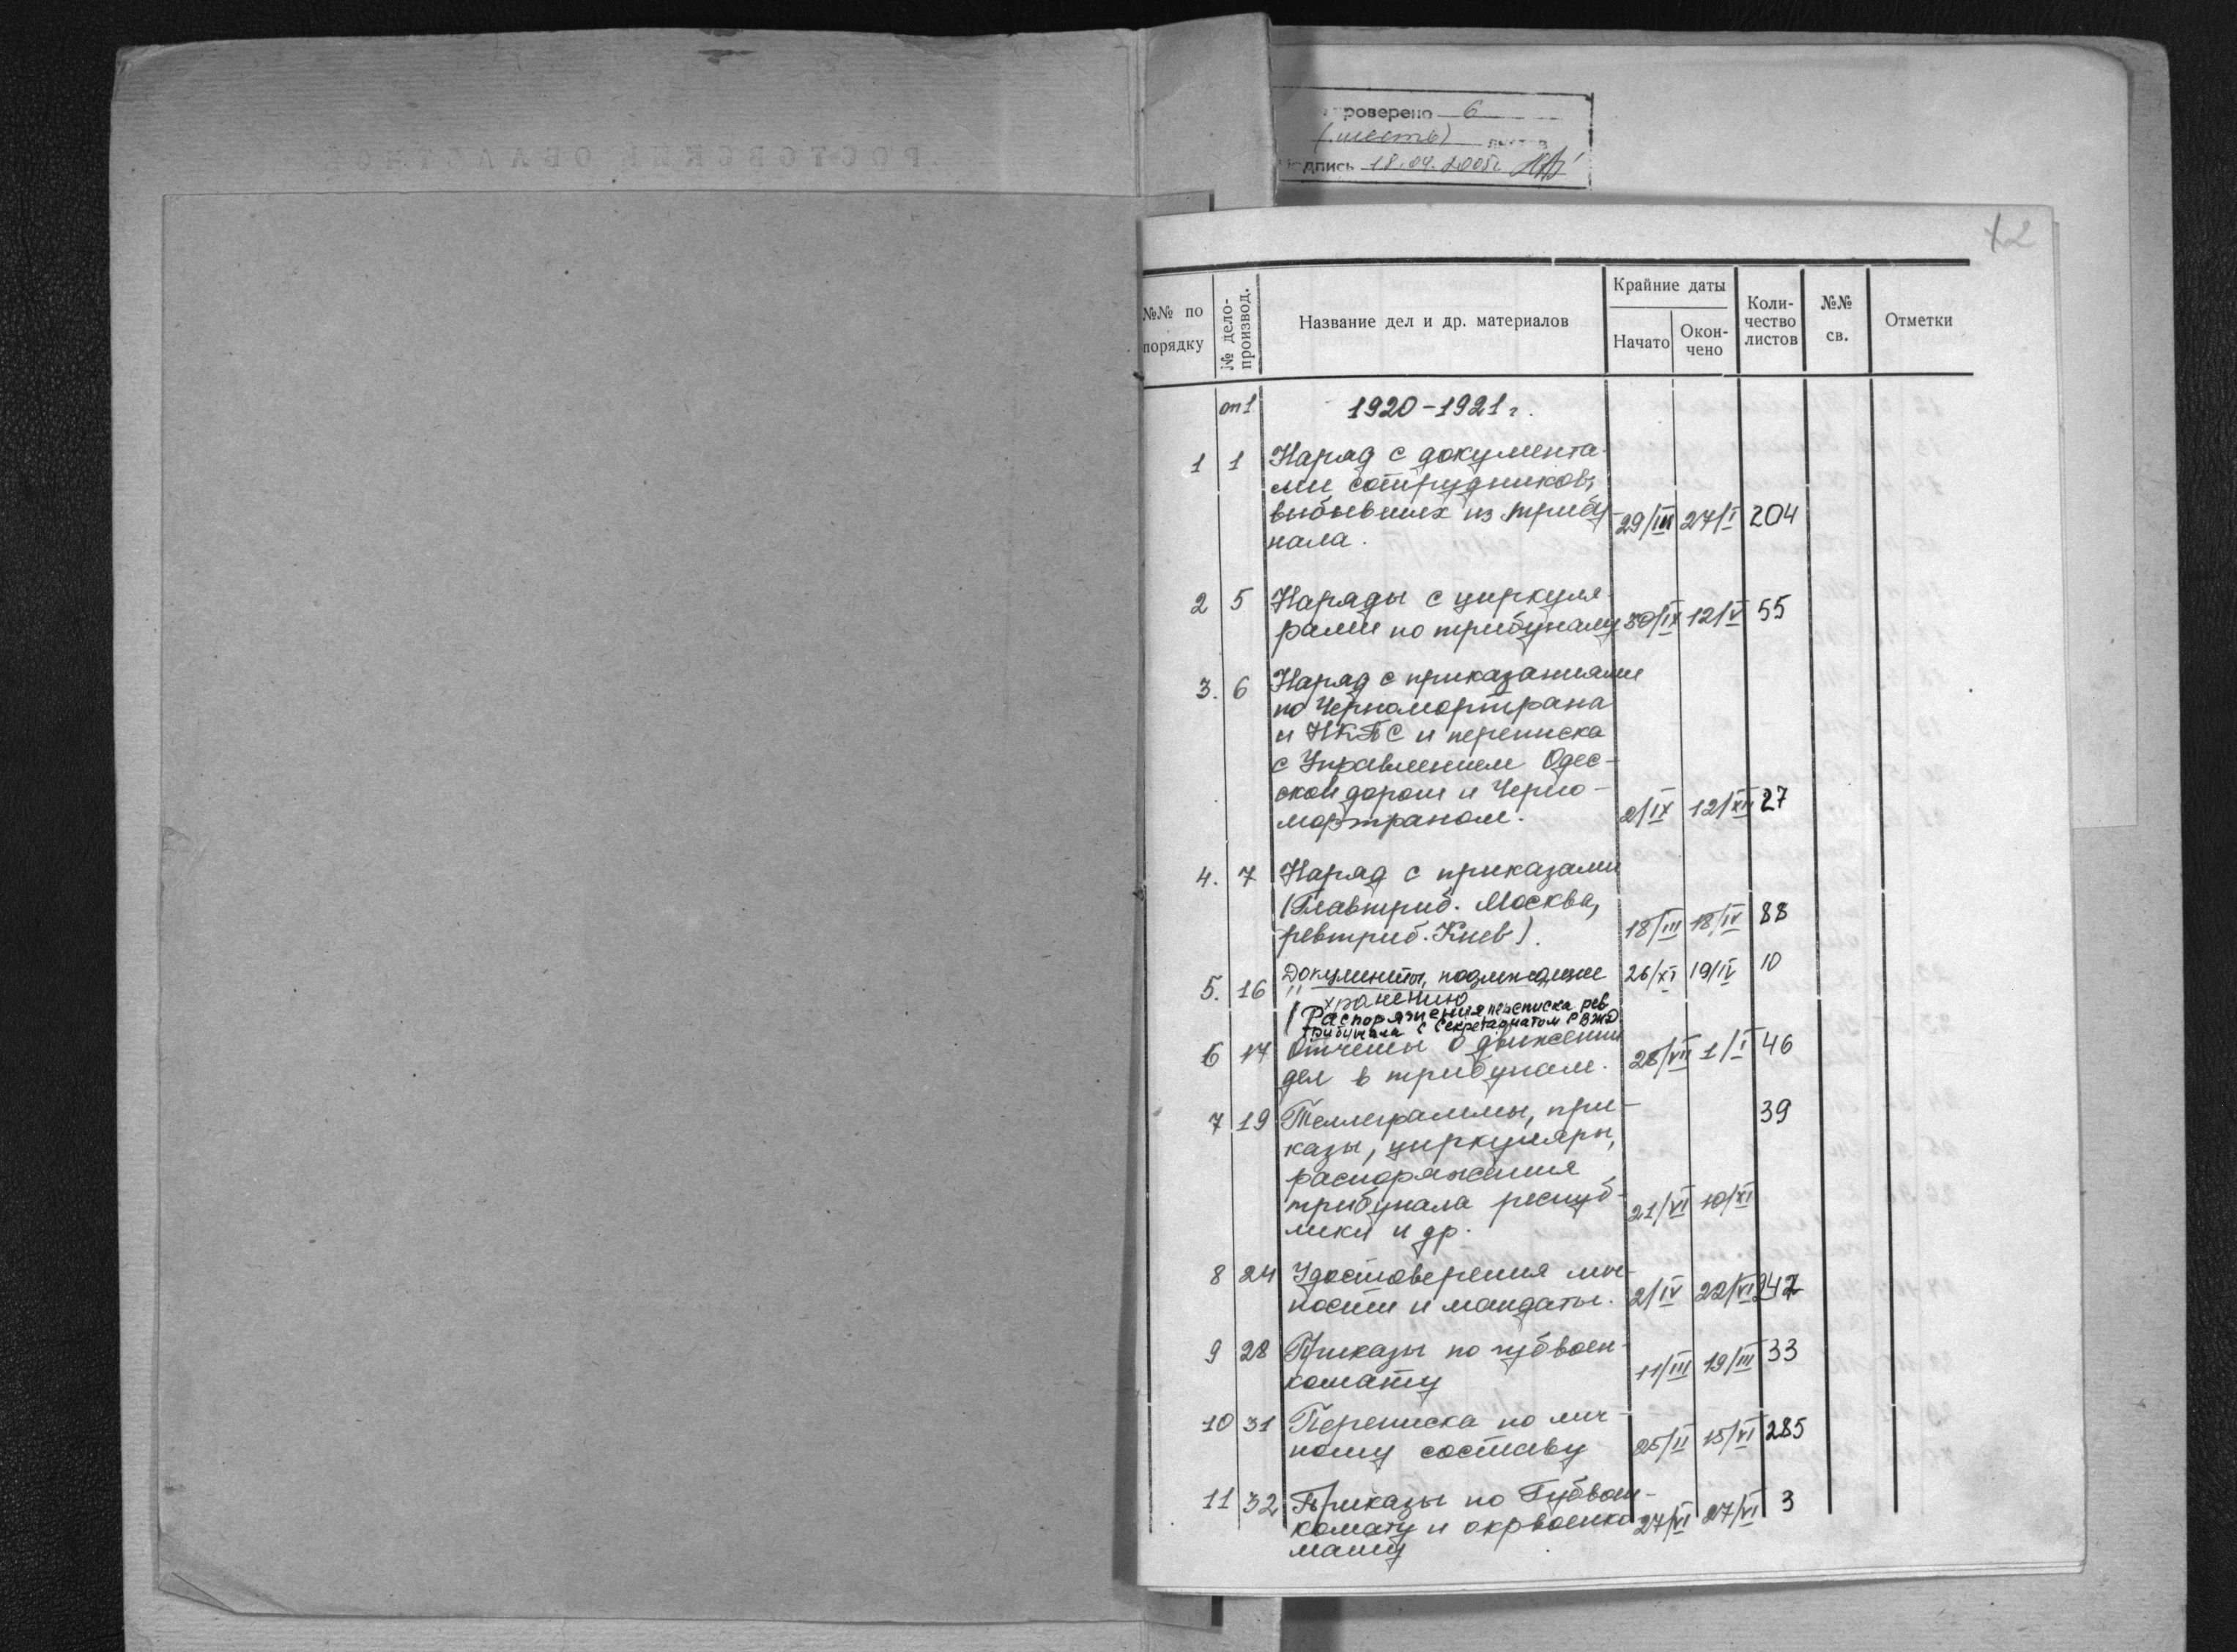 РОСТОВСКИЙ ОБЛАСТНОЙ
проверено 6
(шесть) листов
подпись 18.04.2005г.
2
№№ по порядку
№ дело-производ.
Название дел и др. материалов
Крайние даты
Начато
Окон-чено
Коли-чество листов
№№ св.
Отметки
оп1 1920-1921 г.
1 1 Наряд с документа-
ми сотрудников,
выбывших из трибу- 29/III 27/I 204
нала.
2 5 Наряды с циркуля-
рами по трибуналу 30/IX 12/V 55
3. 6 Наряд с приказаниями
по Черномортрана
и НКПС и переписка
с Управлением Одес-
ской дороги и Черно-
мортраном. 2/IX 12/XII 27
4. 7 Наряд с приказами
(Главтриб. Москва,
ревтриб. Киев). 18/III 18/IV 88
5. 16 Документы, подлежащие 26/XI 19/IV 10
хранению
(Распоряжения, переписка рев
трибунала с Секретариатом
6 17 Отчеты о движении
дел в трибунале. 28/VII 1/I 46
7 19 Теллеграммы, при- 39
казы, циркуляры,
распоряжения
трибунала респуб- 21/VI 10/XI
лики и др.
8 24 Удостоверения лич-
ности и мандаты. 2/IV 22/VI
9 28 Приказы по губвоен-
комату 11/III 19/III 33
10 31 Переписка по лич-
ному составу 25/II 15/VI 285
11 32 Приказы по Губвоен-
комату и окрвоенко 27/VI 27/VI 3
мату